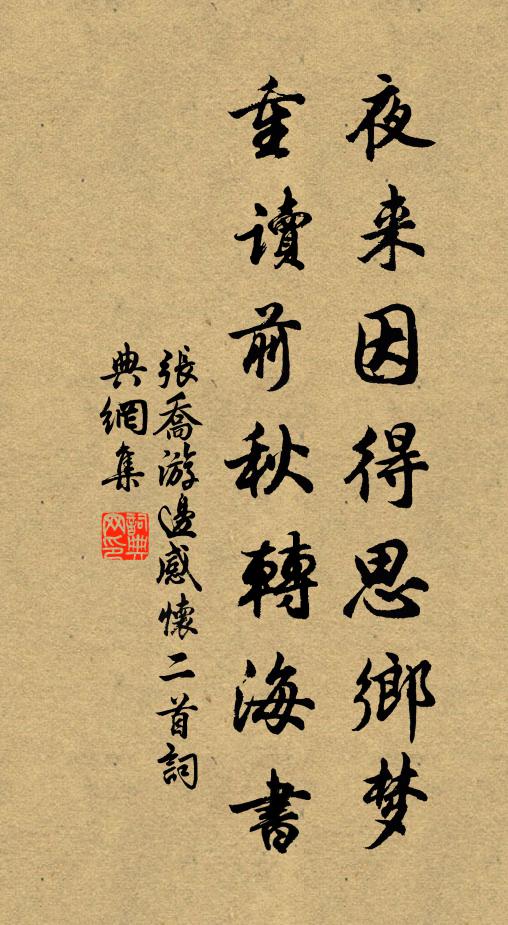 夜来因得思鄉梦
重读前秋轉海書
張喬游邊感懷二首詞
典網集
詞典
网印